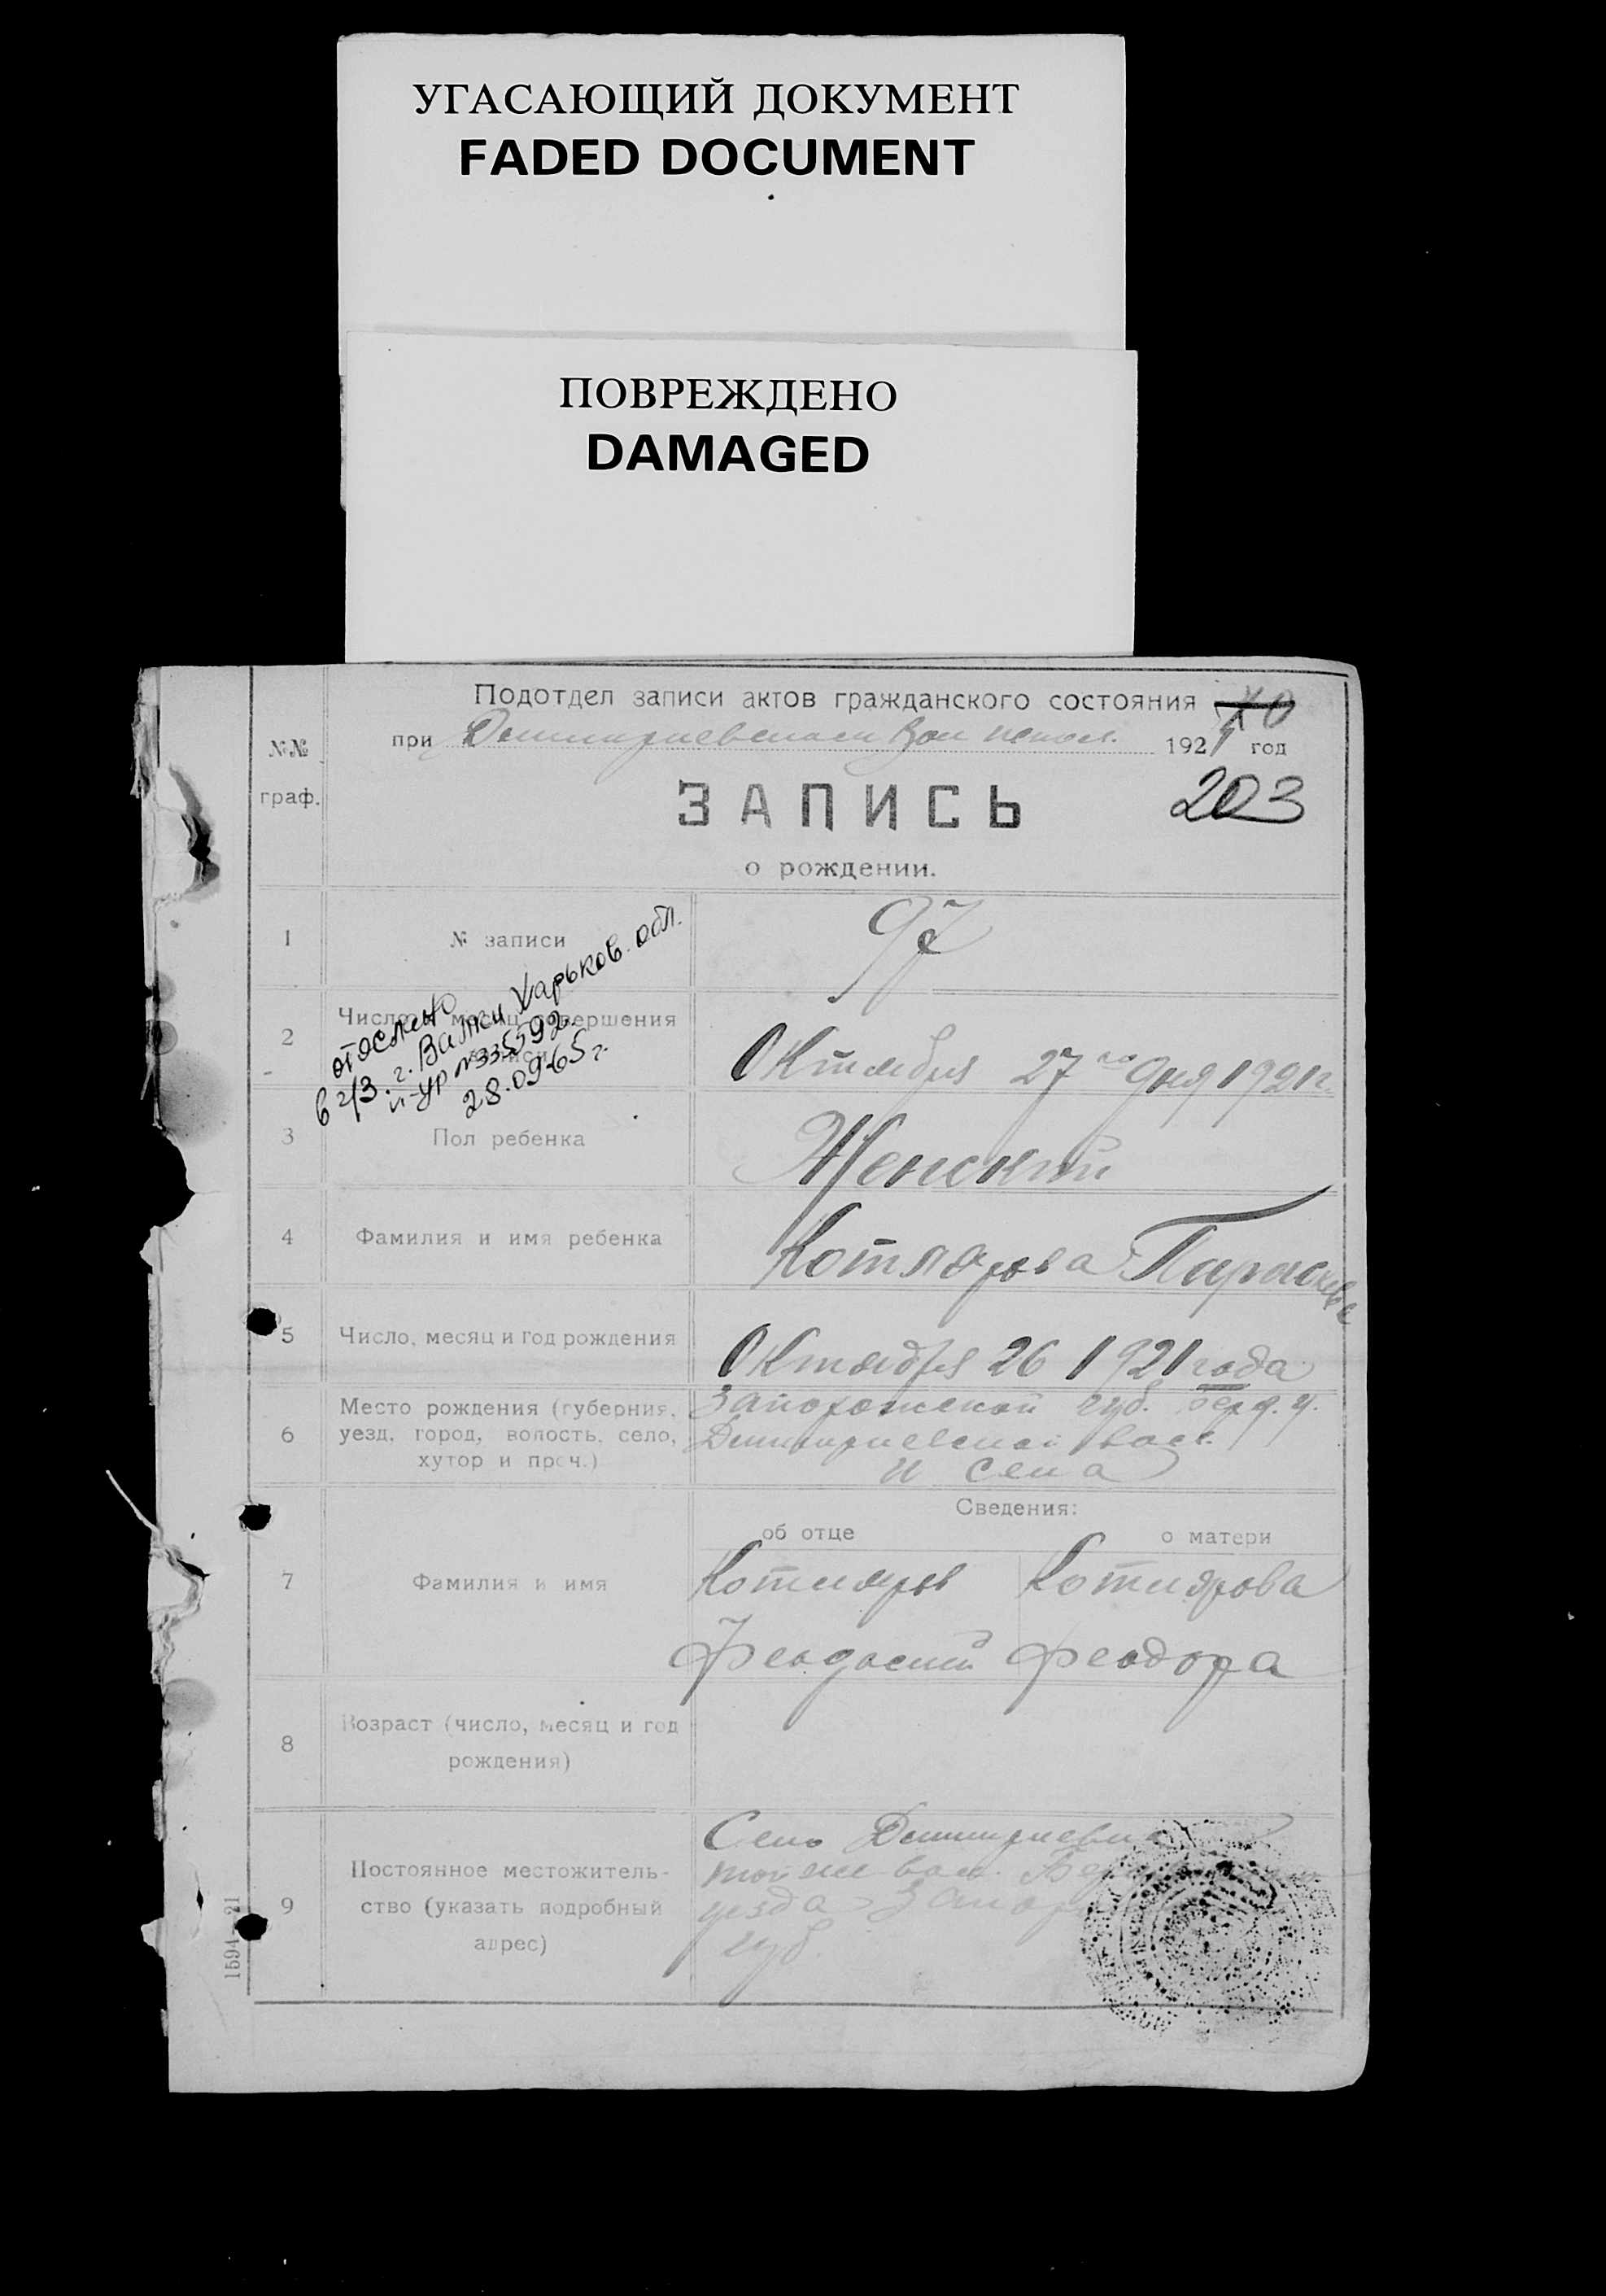 УГАСАЮЩИЙ ДОКУМЕНТ
FADED DOCUMENT
ПОВРЕЖДЕНО
DAMAGED
Подотдел записи актов гражданского состояния
при 1921 год
№№ граф.
203
ЗАПИСЬ
о рождении.
1 № записи 97
отослано
в г/з. г. Валки Харьков. обл.
№335592.
28.09.65 г.
2 Число и месяц совершения записи Октября 27 го дня 1921 г.
3 Пол ребенка Женский
4 Фамилия и имя ребенка Котлярова Параскева
5 Число, месяц и год рождения Октября 26 1921 года
6 Место рождения (губерния,
уезд, город, волость, село,
хутор и проч.)
Запорожской губ. Берд. у.
Дмитриевской вол.
и села
Сведения:
об отце о матери
7 Фамилия и имя
Котляров Котлярова
Феодосий Феодора
8 Возраст (число, месяц и год
рождения)
9 Постоянное местожитель-
ство (указать подробный
адрес)
Село Дмитриевка
той же вол.
уезда
губ.
1594—21